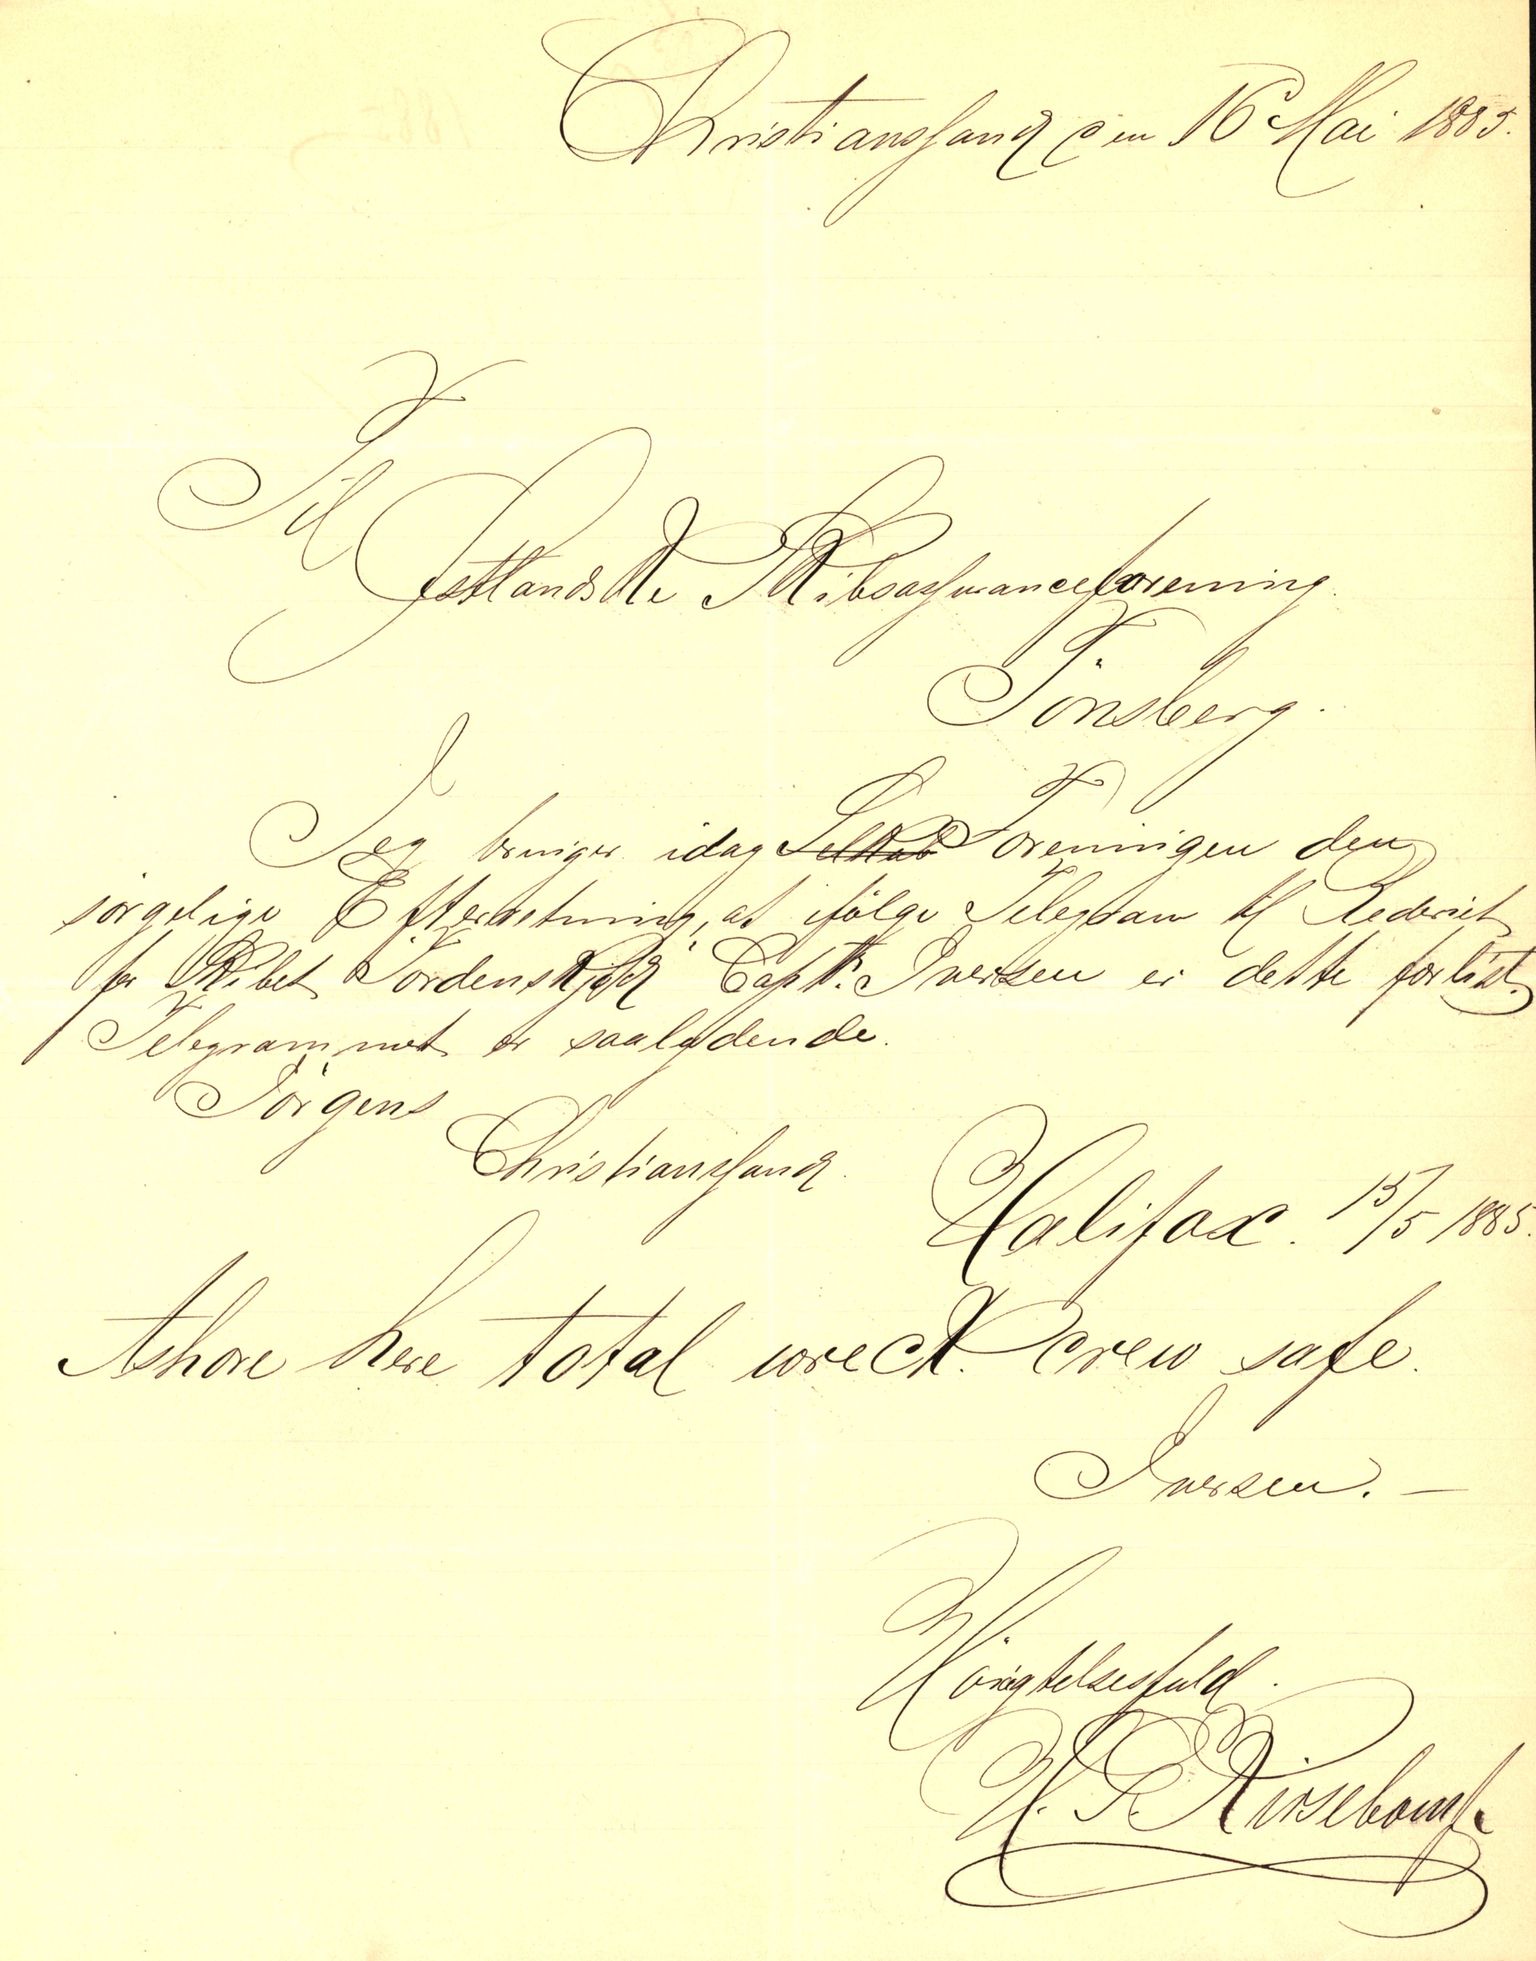 Christianssand den 16 Mai 1885.
Til
Østlandske Skibsassuranceforening.
Tönsberg.
Jeg bringer idag Selskab Foreningen den
sørgelige Efterretning, at ifølge Telegram til Rederiet
for Skibet Tordenskjold Capt. Iversen er dette forlist.
Telegrammet er saalydende.
Jörgens
Christianssand.
Halifax. 15/5 1885.
Ashore here total wreck. Crew safe.
Iversen. —
Høiagtelsesfuld.